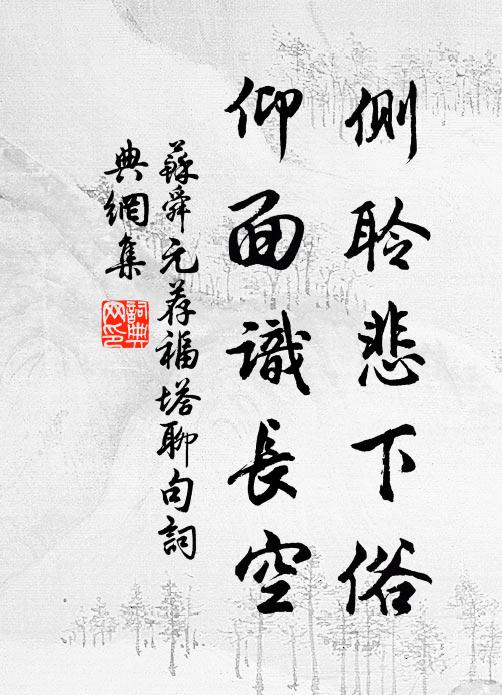 側聆悲下俗
仰面識長空
蘇舜元荐福塔聊句詞
典網集
詞典
网印